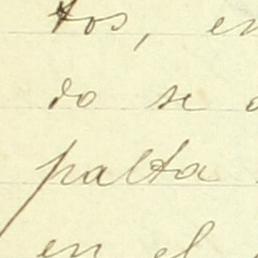 tos, en
do se
palta
en el